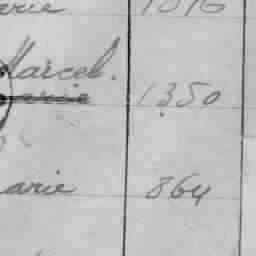 arie 1016
Marcel.
arie 1350
arie 864